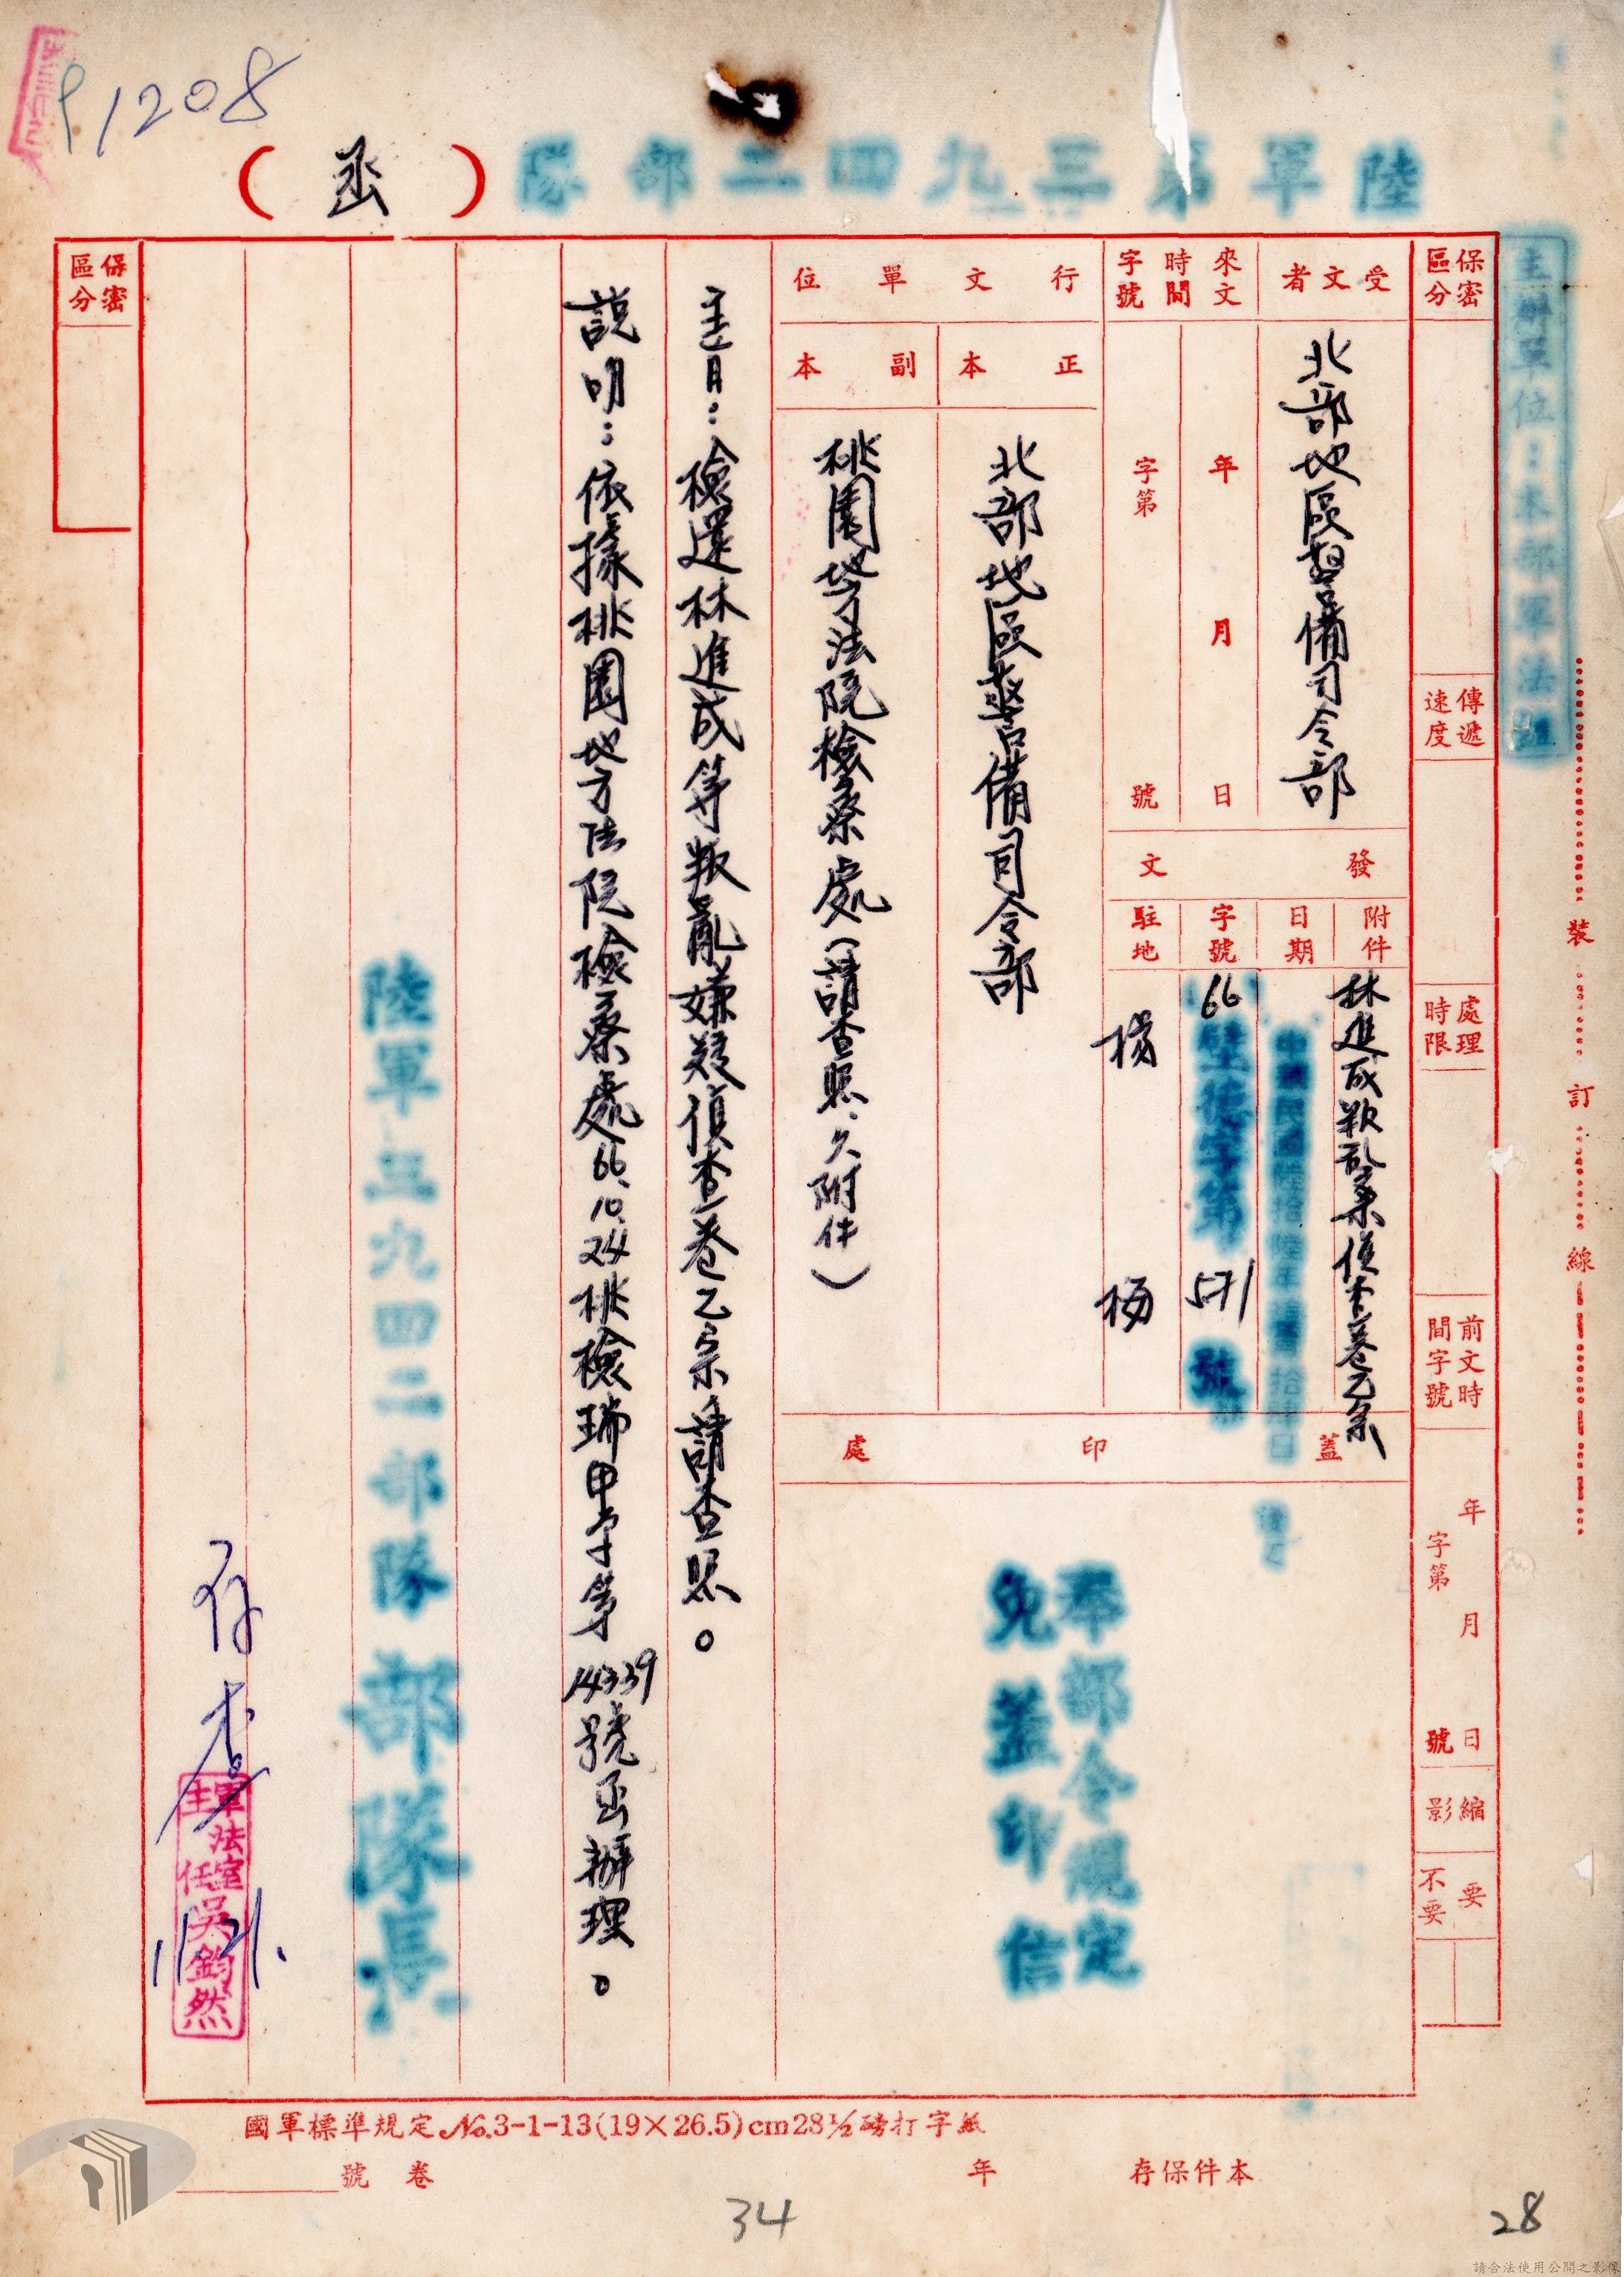 91208
陸軍第三九四二部隊
(函)
主辦單位:本部軍法組
裝
訂
線
保密
區分
傳遞
速度
處理
時限
前文時
間字號
年 月 日
字第 號
縮影
要
不要
受文者
北部地區警備司令部
來文
時間
字號
年 月 日
字第 號
發文
附件
林進成叛亂案偵查卷乙宗
日期
中華民國陸拾陸年
字號
66
字第
571
號
駐地
楊
楊
行文單位
正本
北部地區警備司令部
副本
桃園地方法院檢察處(請查照、欠附件)
蓋印處
奉部令規定
免蓋印信
主旨:檢還林進成等叛亂嫌疑偵查卷乙宗請查照。
說明:依據桃園地方法院檢察處66.10.24桃檢瑞甲字第14339號函辦理。
陸軍三九四二部隊 部隊長
存查
軍法室
主任 吳鈞然
11/21.
保密
區分
國軍標準規定No.3-1-13(19×26.5)cm28½磅打字紙
本件保存 年
卷 號
34
28
請合法使用公開之影像